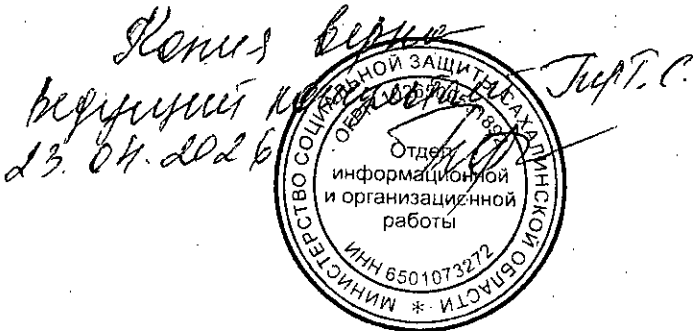 Копия верно
Ведущий консультант Тир Т.С.
23.04.2026
МИНИСТЕРСТВО СОЦИАЛЬНОЙ ЗАЩИТЫ САХАЛИНСКОЙ ОБЛАСТИ *
ОГРН
Отдел
информационной
и организационной
работы
ИНН 6501073272